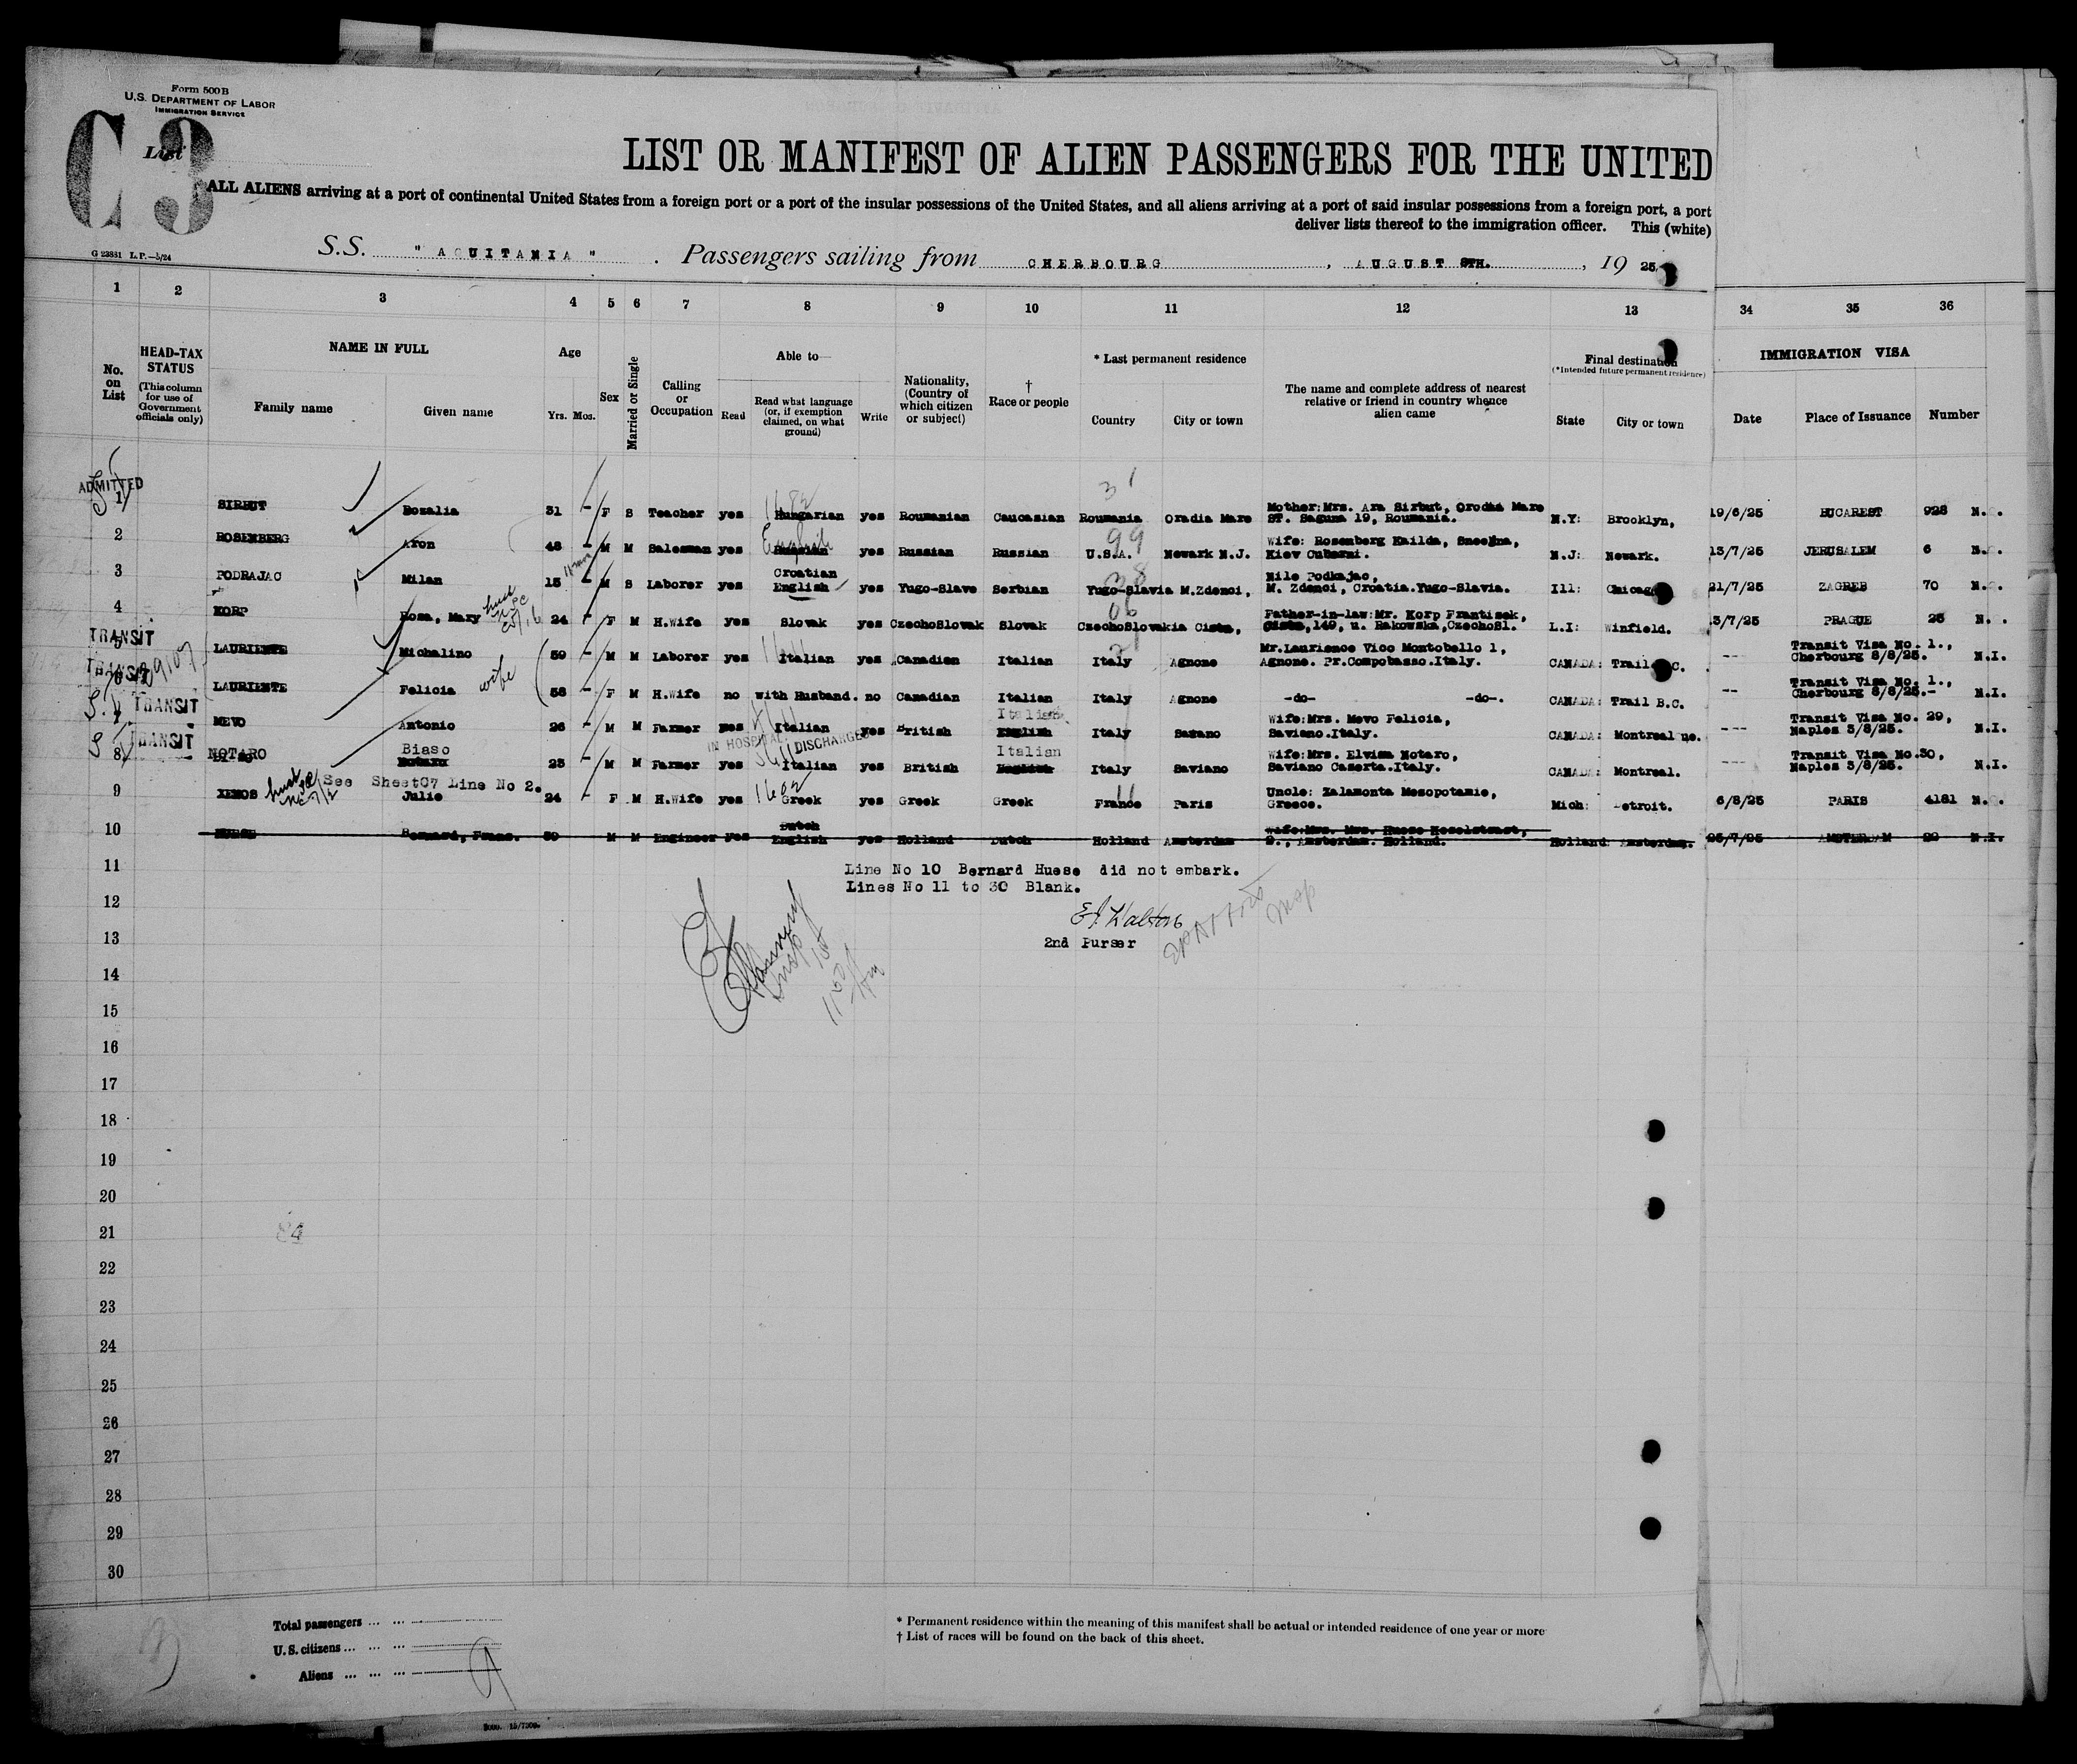 Form 500B
U.S. DEPARTMENT OF LABOR
IMMIGRATION SERVICE
C3
List
LIST OR MANIFEST OF ALIEN PASSENGERS FOR THE UNITED
ALL ALIENS arriving at a port of continental United States from a foreign port or a port of the insular possessions of the United States, and all aliens arriving at a port of said insular possessions from a foreign port, a port
deliver lists thereof to the immigration officer. This (white)
G 23881 L.P.—5/24
S.S. " AQUITANIA " . Passengers sailing from CHERBOURG , AUGUST 8TH. , 19 25.
1 2 3 4 5 6 7 8 9 10 11 12 13 34 35 36
No. on List
HEAD-TAX STATUS (This column for use of Government officials only)
NAME IN FULL
Family name Given name
Age
Yrs. Mos.
Sex
Married or Single
Calling or Occupation
Able to
Read
Read what language (or, if exemption claimed, on what ground)
Write
Nationality, (Country of which citizen or subject)
† Race or people
* Last permanent residence
Country City or town
The name and complete address of nearest relative or friend in country whence alien came
Final destination
(*Intended future permanent residence)
State City or town
IMMIGRATION VISA
Date Place of Issuance Number
ADMITTED
1 SIRBUT Rozalia 31 - F S Teacher yes Hungarian yes Roumanian Caucasian Roumania Oradia Mare Mother: Mrs. Ara Sirbut, Orodia Mare ST. Saguna 19, Roumania. N.Y: Brooklyn, 19/6/25 BUCAREST 928 N.
2 ROSENBERG Aron 48 - M M Salesman yes Russian English yes Russian Russian U.S.A. Newark N.J. Wife: Rosenberg Kiev N.J: Newark. 13/7/25 JERUSALEM 6 N.
3 PODRAJAC Milan 15 - M S Laborer yes Croatian English yes Yugo-Slave Serbian Yugo-Slavia M.Zdenci, Mile Podkajac, M. Zdenci, Croatia.Yugo-Slavia. Ill: Chicago 21/7/25 ZAGREB 70 N.
4 KORP Rosa, Mary 24 - F M H.Wife yes Slovak yes CzechoSlovak Slovak CzechoSlovakia Cista, Father-in-law: Mr. Korp Frantisek, Cista, 149, u. Rakowska, CzechoSl. L.I: Winfield. 3/7/25 PRAGUE 25 N. .
TRANSIT
5 LAURIENTE Michalino 59 - M M Laborer yes Italian yes Canadian Italian Italy Agnone Mr.Laurience Vico Montobello 1, Agnone. Pr.Compobasso.Italy. CANADA: Trail B.C. -- Transit Visa No. 1., Cherbourg 8/8/25. N.I.
TRANSIT
6 LAURIENTE Felicia wife 58 - F M H.Wife no with Husband. no Canadian Italian Italy Agnone -do- -do-. CANADA: Trail B.C. -- Transit Visa No. 1., Cherbourg 8/8/25.- N.I.
TRANSIT
7 MEVO Antonio 26 - M M Farmer yes Italian yes British English Italian Italy Saxano Wife: Mrs. Mevo Felicia, Saviano.Italy. CANADA: Montreal --- Transit Visa No. 29, Naples 3/8/25. N.I.
IN HOSPITAL DISCHARGE
TRANSIT
8 NOTARO Biaso Notaro 23 - M M Farmer yes Italian yes British English Italian Italy Saviano Wife: Mrs. Elvisa Notaro, Saviano Caserta.Italy. CANADA: Montreal. --- Transit Visa No.30, Naples 3/8/25. N.I.
See Sheet C7 Line No 2.
9 XENOS Julie 24 - F M H.Wife yes Greek yes Greek Greek France Paris Uncle: Zalamonta Mesopotamie, Greece. Mich: Detroit. 6/8/25 PARIS 4181 N.
10 HUESE Bernard, Frans. 39 M M Engineer yes Dutch English yes Holland Dutch Holland Amsterdam Amsterdam. Holland. Holland Amsterdam. 25/7/25 AMSTERDAM 22 N.I.
11
Line No 10 Bernard Huese did not embark.
Lines No 11 to 30 Blank.
12
13
2nd Purser
14
15
16
17
18
19
20
21
84
22
23
24
25
26
27
28
29
30
Total passengers ... ...
U.S. citizens ... ... ...
Aliens ... ... ...
* Permanent residence within the meaning of this manifest shall be actual or intended residence of one year or more
† List of races will be found on the back of this sheet.